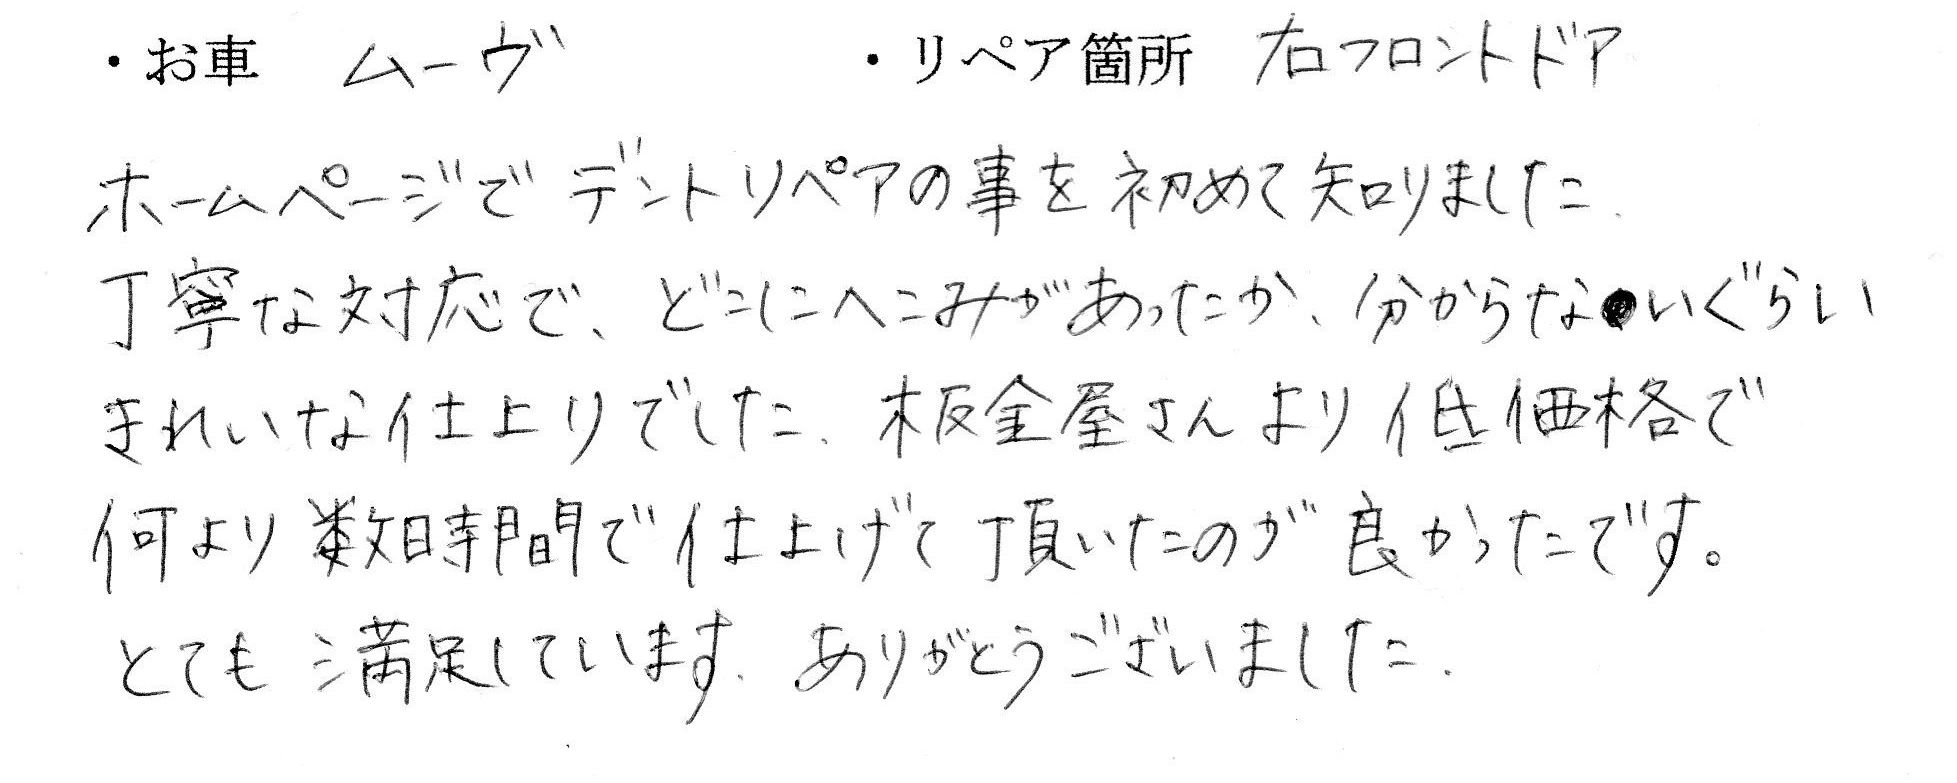 ・お車　ムーヴ　・リペア箇所　右フロントドア
ホームページでデントリペアの事を初めて知りました.
丁寧な対応で、どこにへこみがあったか、分からないぐらい
きれいな仕上りでした. 板金屋さんより低価格で
何より数時間で仕上げて頂いたのが良かったです。
とても満足しています. ありがとうございました.